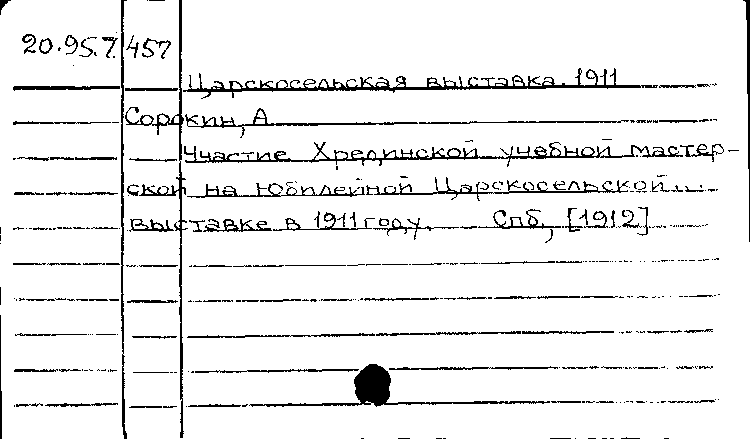 20.95.7.457
Царскосельская выставка. 1911
Сорокин, А
Участие Хрединской учебной мастер-
ской на Юбилейной Царскосельской...
выставке в 1911 году. Спб, [1912]